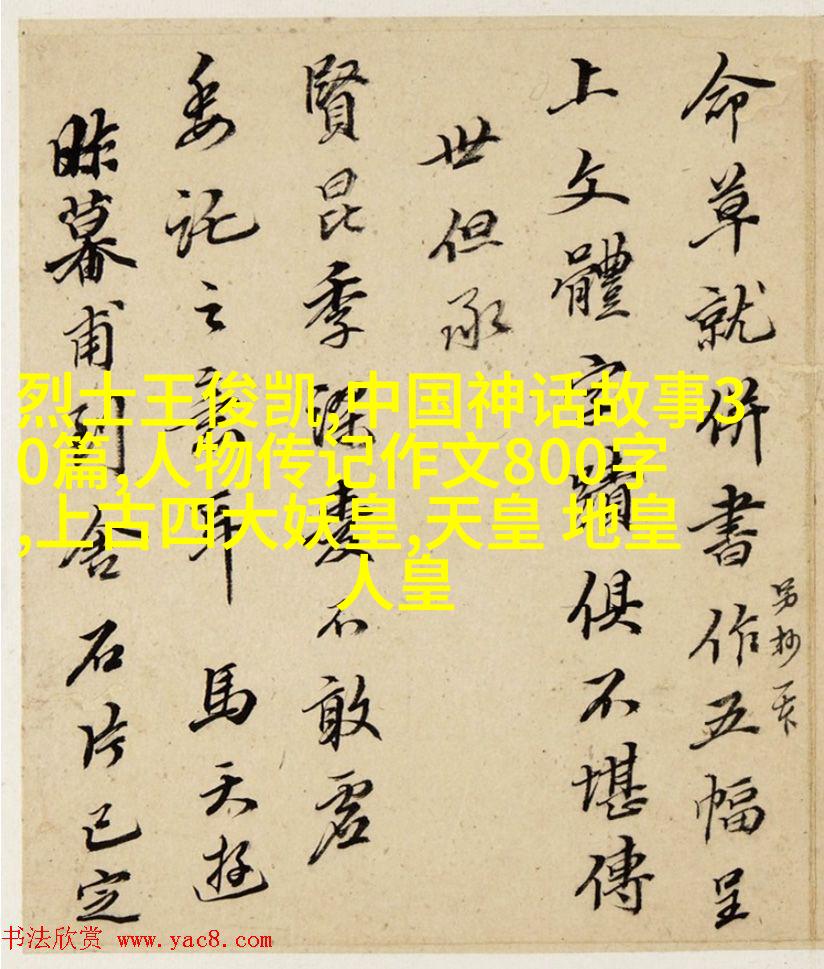 命草就併書作五幅呈
上文體字蹟俱不堪傳
世但承
賢昆季深愛不敢虛
委託之意耳 馬天遊
昨暮甫到 舍石片已定
另抄一下
烈士王俊凯,中国神话故事3
0篇,人物传记作文800字
,上古四大妖皇,天皇 地皇
人皇
书法欣赏 www.yac8.com